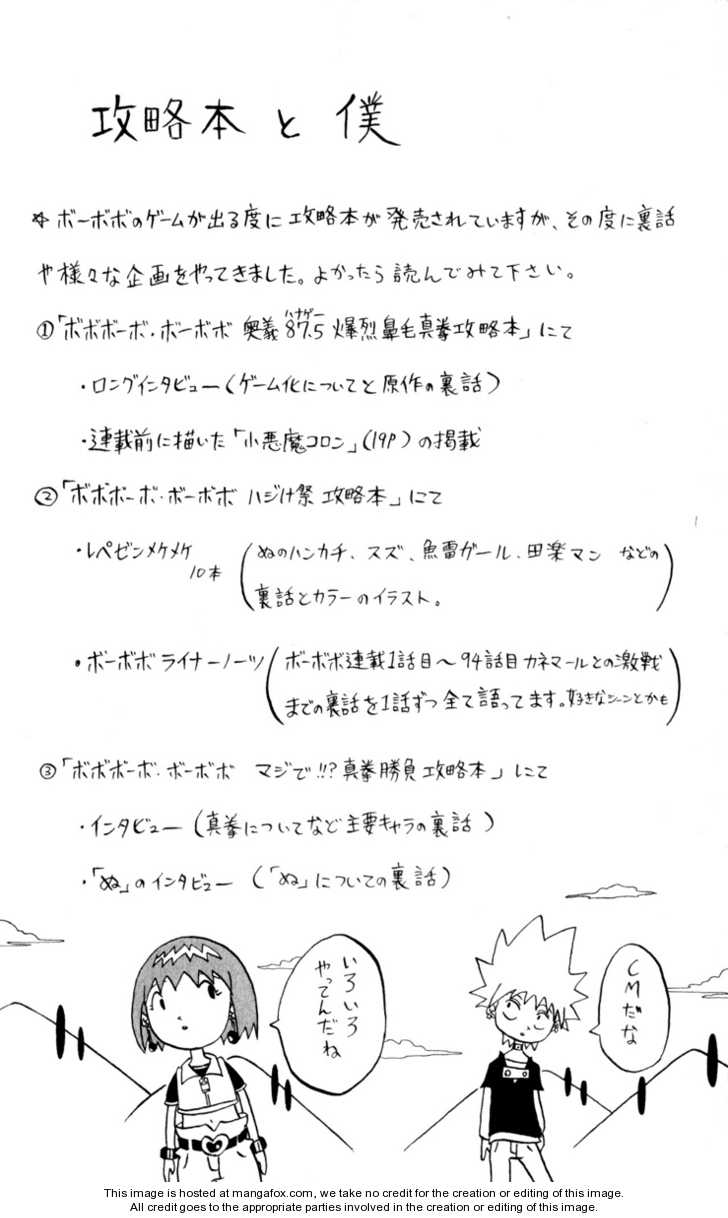 攻略本と僕
☆ボーボボのゲームが出る度に攻略本が発売されていますが、その度に裏話
や様々な企画をやってきました。よかったら読んでみて下さい。
①「ボボボーボ・ボーボボ 奥義 87.5 爆烈鼻毛真拳攻略本」にて
ハナゲー
・ロングインタビュー(ゲーム化についてと原作の裏話)
・連載前に描いた「小悪魔コロン」(19P)の掲載
②「ボボボーボ・ボーボボ ハジけ祭 攻略本」にて
・レペゼンメケメケ
10本
(ぬのハンカチ、スズ、魚雷ガール、田楽マン などの
裏話とカラーのイラスト。)
・ボーボボライナーノーツ(ボーボボ連載1話目〜94話目カネマールとの激戦
までの裏話を1話ずつ全て語ってます。好きなシーンとかも)
③「ボボボーボ・ボーボボ マジで!!?真拳勝負 攻略本」にて
・インタビュー(真拳についてなど主要キャラの裏話)
・「ぬ」のインタビュー(「ぬ」についての裏話)
CMだな
いろいろ
やってんだね
This image is hosted at mangafox.com, we take no credit for the creation or editing of this image.
All credit goes to the appropriate parties involved in the creation or editing of this image.